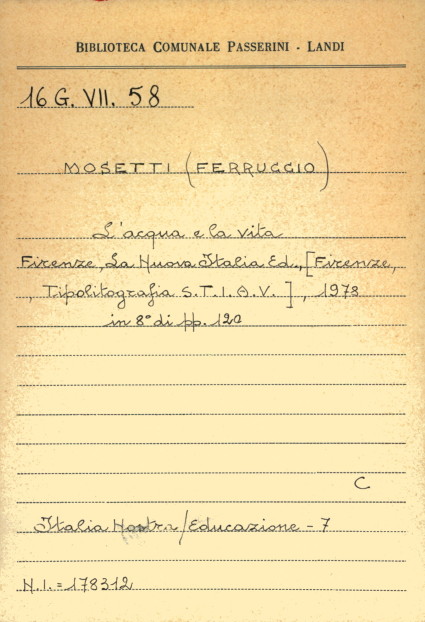 BIBLIOTECA COMUNALE PASSERINI - LANDI
16 G. VII. 58
MOSETTI (FERRUGGIO)
L'acqua e la vita
Firenze, La Nuova Italia Ed., [Firenze,
, Tipolitografia S.T.I.A.V.], 1978
in 8° di pp. 120
C
Italia Nostra/Educazione - 7
N.I. = 178312